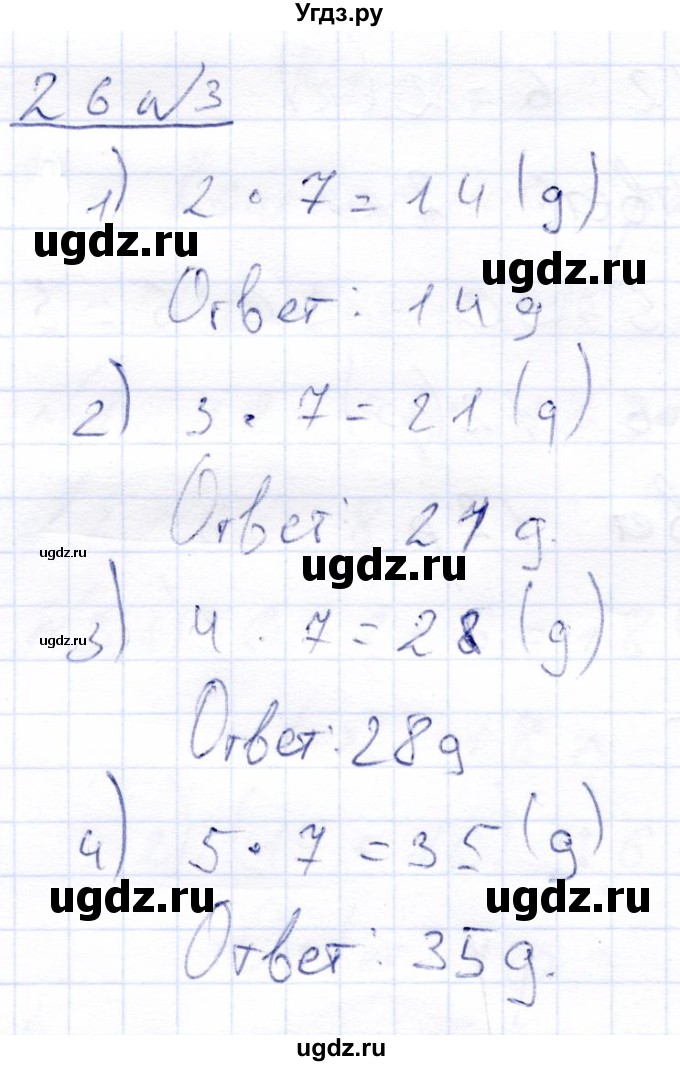 Угдз.ру
26 №3
1) 2 · 7 = 14 (д)
ugdz.ru
ugdz.ru
Ответ: 14 д
2) 3 · 7 = 21 (д)
Ответ: 21 д.
ugdz.ru
ugdz.ru
3) 4 · 7 = 28 (д)
ugdz.ru
Ответ: 28 д
4) 5 · 7 = 35 (д)
ugdz.ru
ugdz.ru
Ответ: 35 д.
ugdz.ru